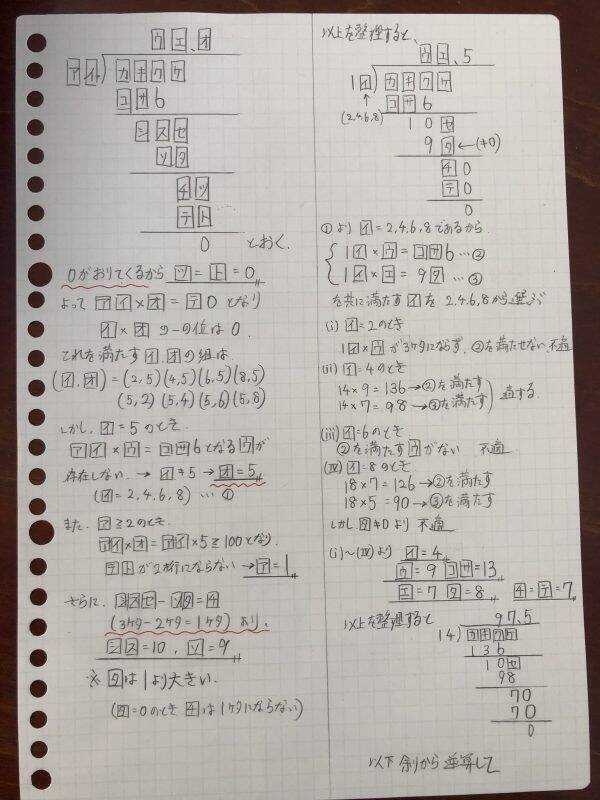 ウエ.オ
アイ)カキクケ
コサ6
シスセ
ソタ
チツ
テト
0 とおく.
0がおりてくるから ツ=ト=0
よって アイ×オ=テ0 となり
イ×オ の一の位は0.
これを満たすイ,オの組は
(イ,オ)=(2,5)(4,5)(6,5)(8,5)
(5,2)(5,4)(5,6)(5,8)
しかし,イ=5のとき
アイ×ウ=コサ6となるウが
存在しない→イ≠5→オ=5
(イ=2,4,6,8)…①
また,ア≧2のとき
アイ×オ=アイ×5≧100となり
テトが2桁にならない→ア=1
さらに,シスセ-ソタ=チ
(3ケタ-2ケタ=1ケタ)より,
シス=10,ソ=9
※タは1より大きい.
(タ=0のときチは1ケタにならない)
以上を整理すると、
ウエ.5
1イ)カキクケ
(2,4,6,8) コサ6
10セ
9タ←(≠0)
チ0
テ0
0
①よりイ=2,4,6,8であるから
1イ×ウ=コサ6…②
1イ×エ=9タ…③
を共に満たすイを2,4,6,8から選ぶ
(i)イ=2のとき
1イ×ウが3ケタにならず,②を満たせない 不適
(ii)イ=4のとき
14×9=136→②を満たす
14×7=98→③を満たす 適する
(iii)イ=6のとき
②を満たすウがない 不適
(iv)イ=8のとき
18×7=126→②を満たす
18×5=90→③を満たす
しかしタ≠0より不適
(i)~(iv)より イ=4
ウ=9 コサ=13
エ=7 タ=8 チ=テ=7
以上を整理すると
97.5
14)カキクケ
136
10セ
98
70
70
0
以下 余りから逆算して